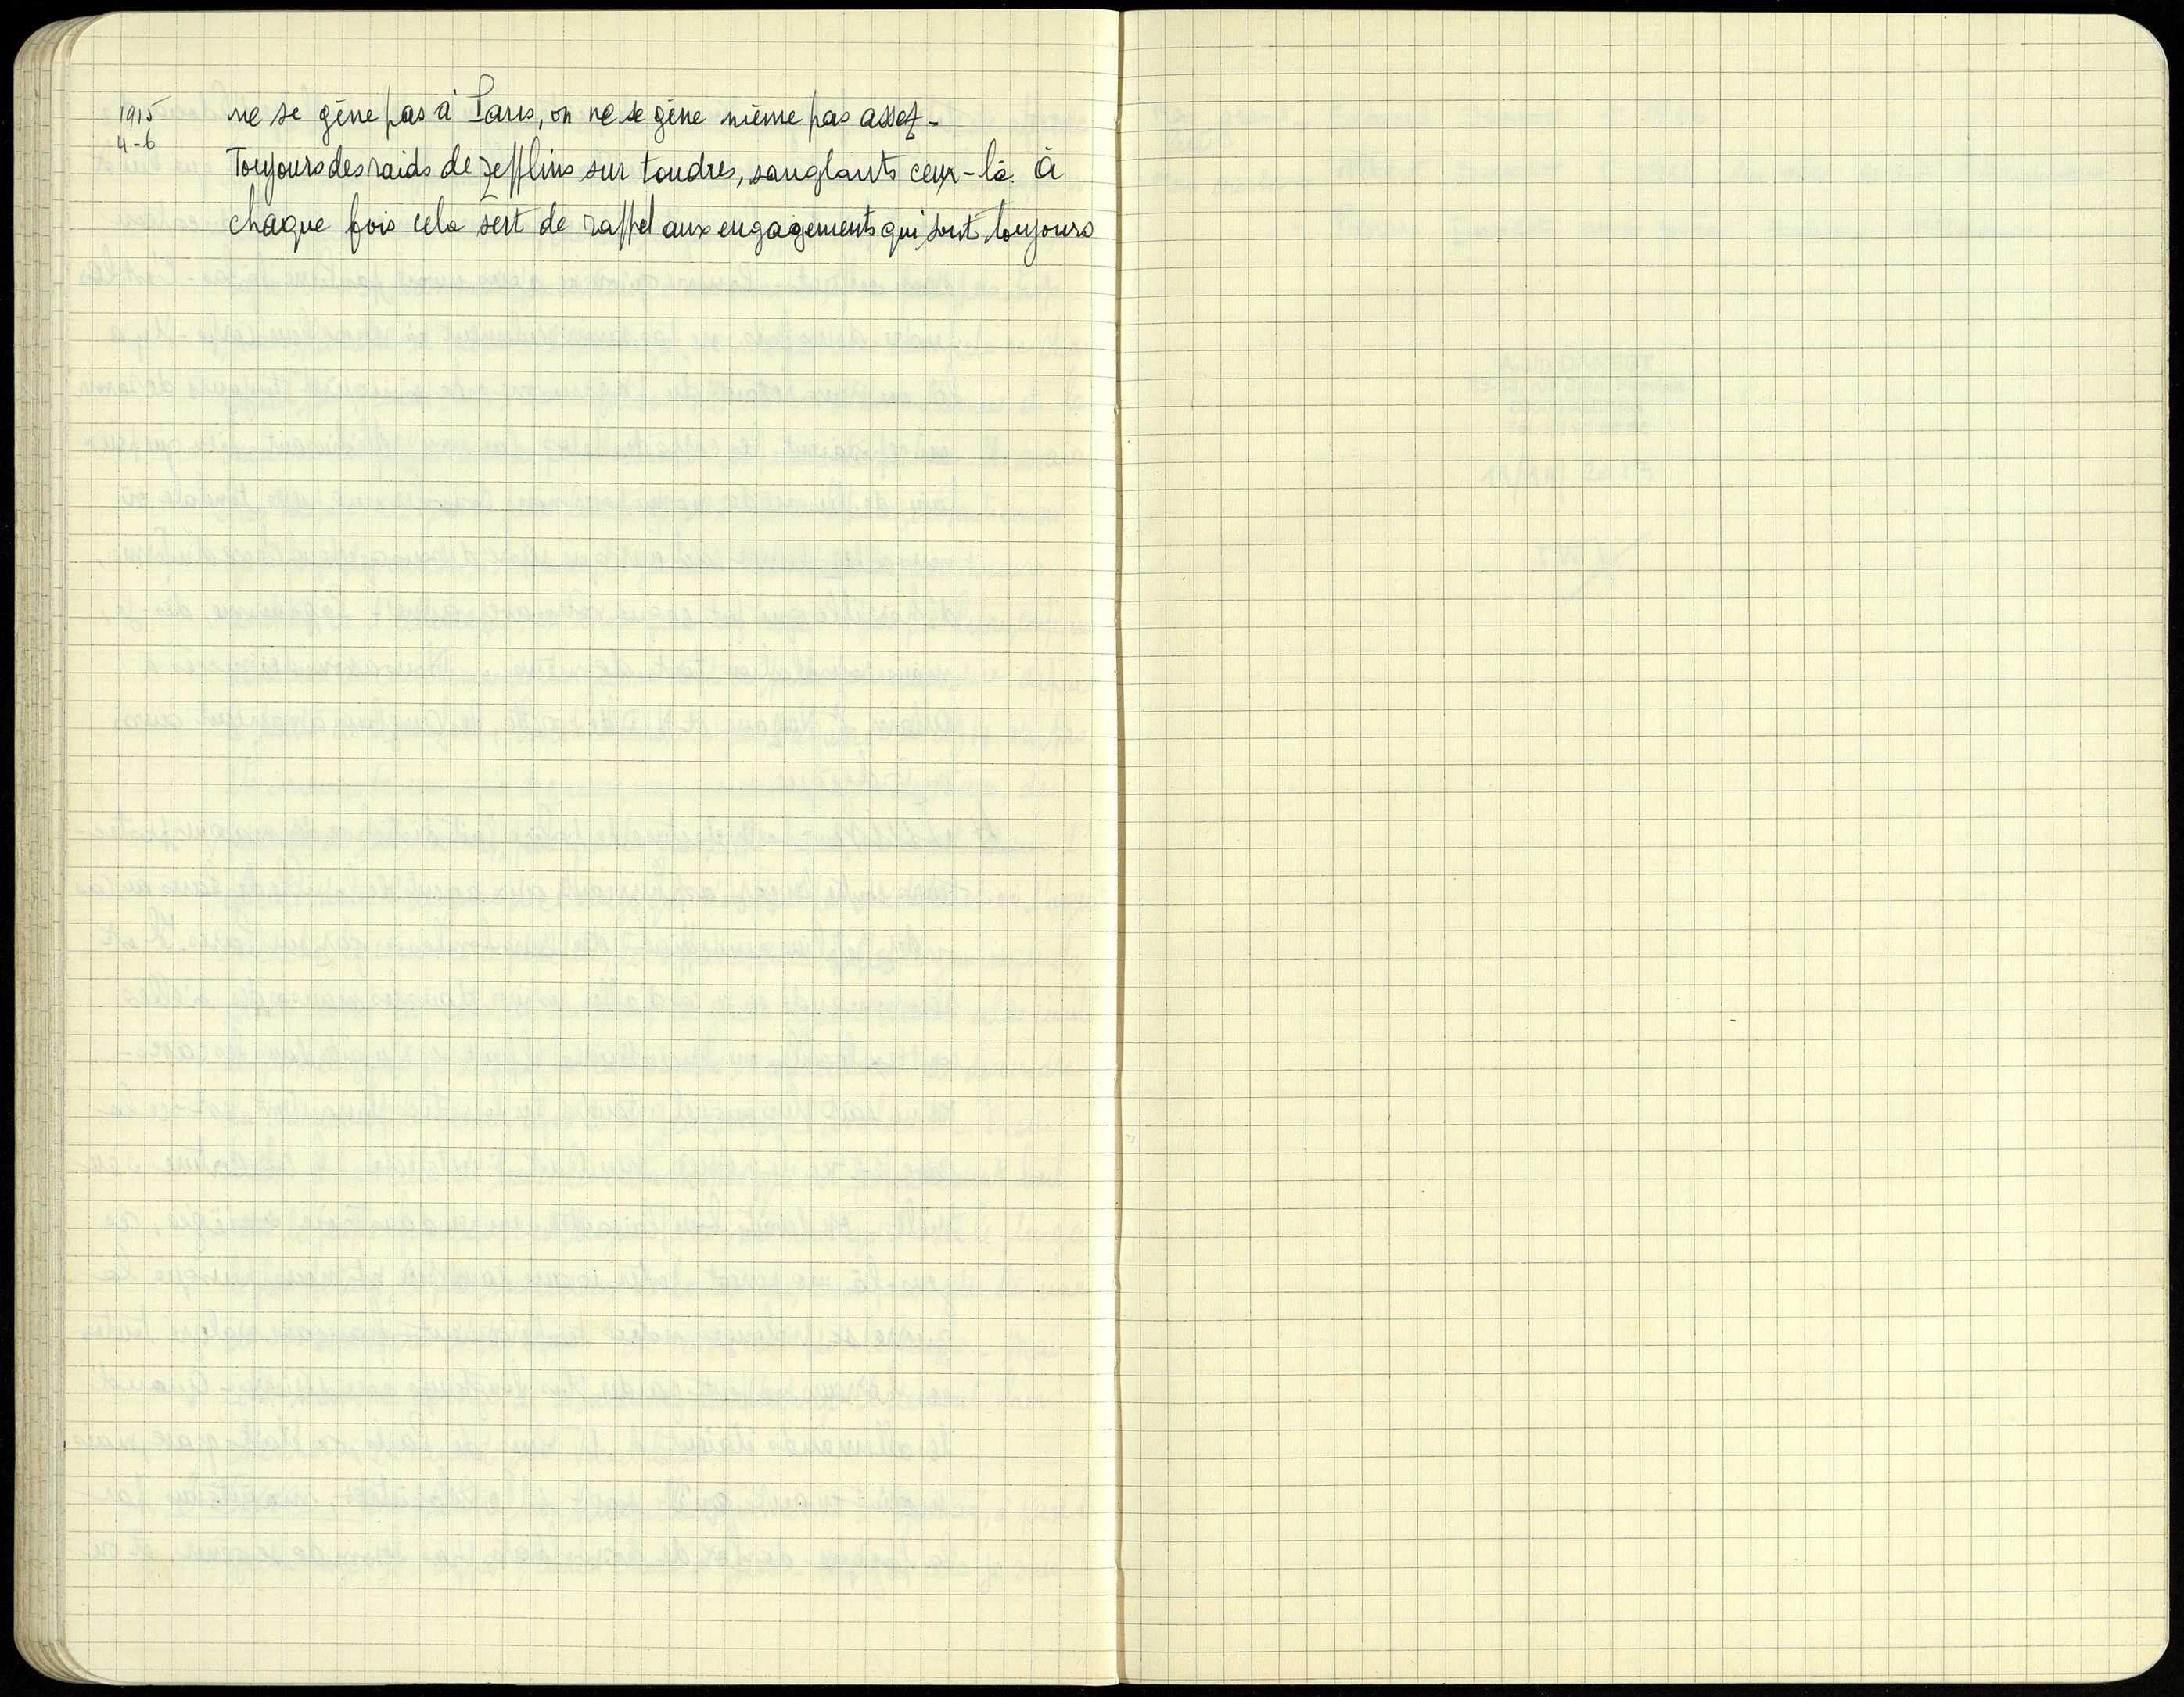 1915
4-6
ne se gêne pas à Paris, on ne se gêne même pas assez -
Toujours des raids de zepplins sur Londres, sanglants ceux-là. À
chaque fois cela sert de rappel aux engagements qui sont toujours